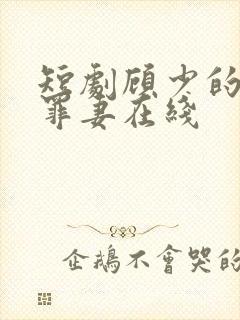 短劇顾少的
罪妻在綫
企鵝不會哭的